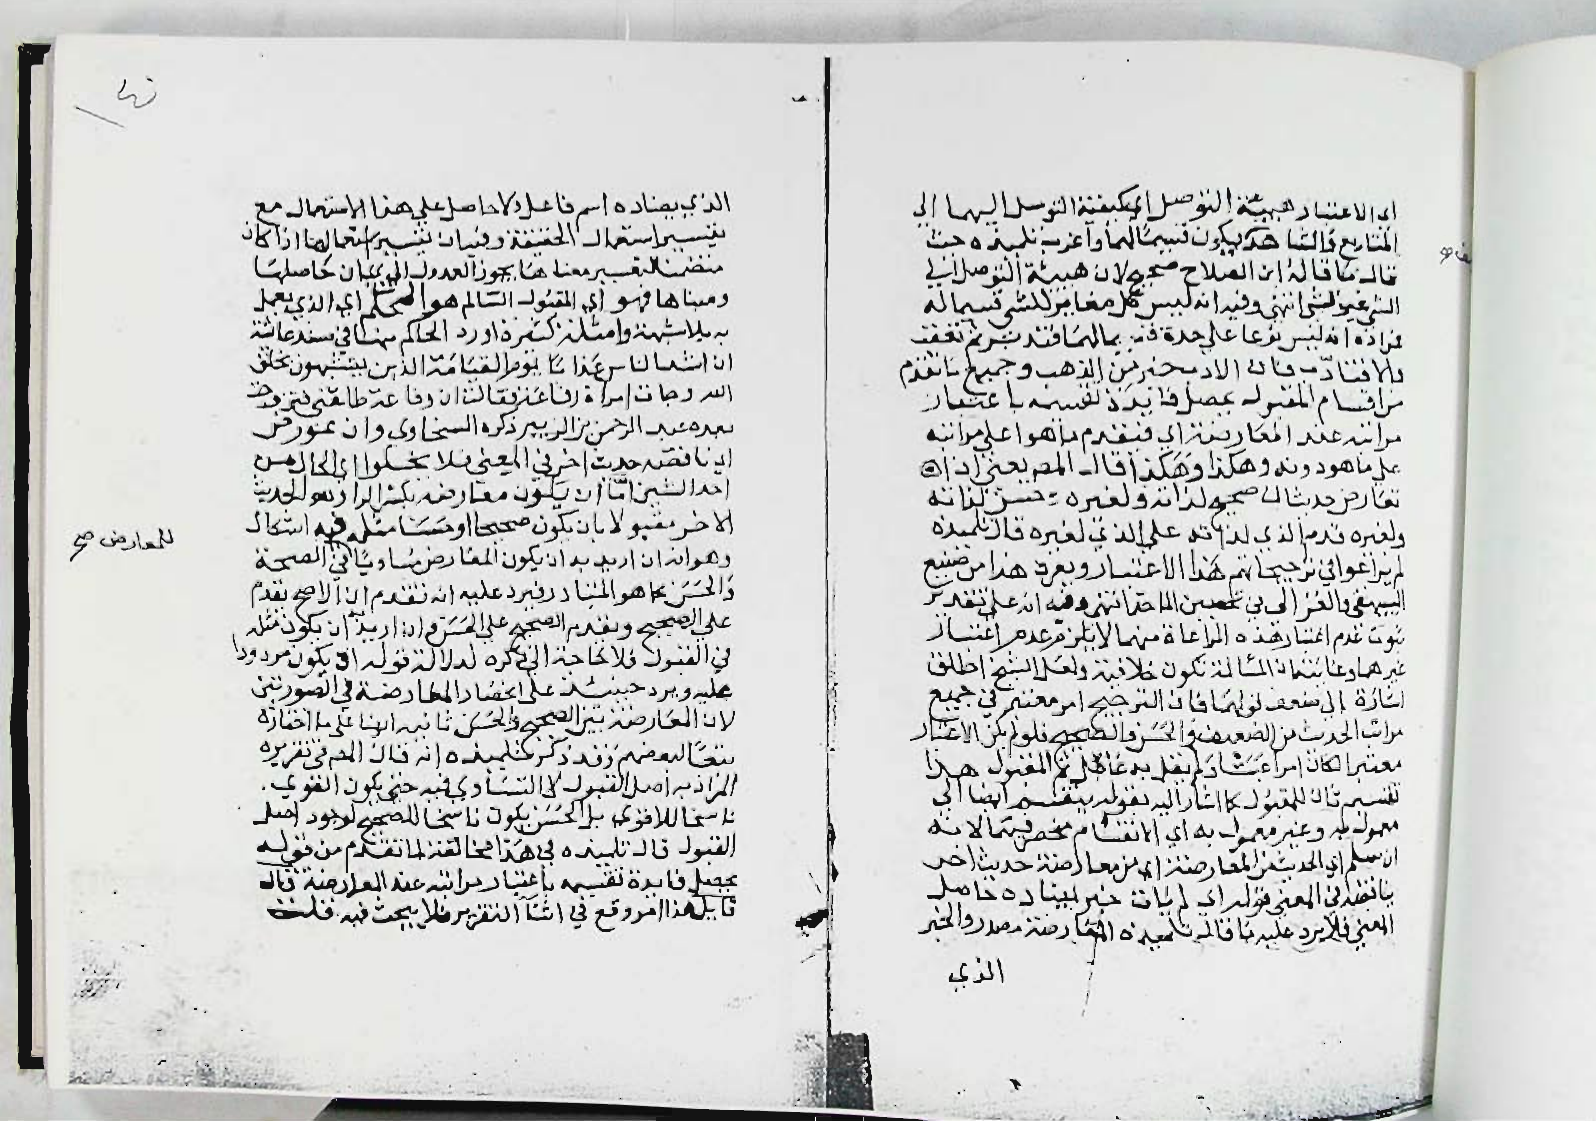 اي الاعتبار هيئة التوصل اي كيفية التوسل اليهما الى
المتابع والشاهد فكيف يكون قسيما لهما وأغرب تلميذه حيث
قال ما قاله ابن الصلاح صحيح لان هيئة التوصل الى
الشيء غير الشيء انتهى وفيه انه ليس كل مغاير للشيء قسيما له
فمراده انه ليس نوعا على حدة
والا فتأدب فان الادب خير من الذهب وجميع ما تقدم
من اقسام المقبول يحصل فائدة تقسيمه باعتبار
مراتبه عند المعارضة اي فيتقدم ما هو اعلى مراتبه
على ما هو دونه وهكذا وهكذا قال المص يعني اذا
تعارض حديثان صحيح لذاته ولغيره حسن لذاته
ولغيره قدم الذي لذاته على الذي لغيره قال تلميذه
لم يراعوا في ترجيحاتهم هذا الاعتبار ويعرف هذا من صنيع
البيهقي والغزالي في تحسين انتهى وفيه انه على تقدير
ثبوت عدم اعتبار هذه المراعاة منهما لا يلزم عدم اعتبار
غيرهما وغايته ان المسألة تكون خلافية ولعل الشيخ اطلق
اشارة الى ضعف قولهما فان الترجيح امر معتبر في جميع
مراتب الحديث من الضعيف والحسن والصحيح فلو لم يكن الاعتبار
معتبرا لكان امرا عبثا ولم يقل به عاقل ثم المقبول هذا
تقسيم ثان للمقبول كما اشار اليه بقوله ينقسم ايضا الى
معمول به وغير معمول به اي الانقسام منحصر فيهما لانه
ان سلم اي الحديث من المعارضة اي من معارضة حديث اخر
يناقضه في المعنى فقوله اي لم يأت خبر يضاده حاصل
المعنى فلا يرد عليه ما قاله تلميذه المعارضة مصدر والخبر
الذي
الذي يضاده اسم فاعل ولا حاصل على هذا الاستعمال مع
تيسير استعمال الحقيقة وفيه ان تيسير استعمالها اذا كان
متضمنا لتعسير معناها يجوز العدول الى بيان حاصلها
ومبناها فهو اي المقبول السالم هو المحكم اي الذي يعمل
به بلا شبهة وامثلته كثيرة اورد الحاكم منها في مسند عائشة
ان اشد الناس عذابا يوم القيامة الذين يتشبهون بخلق
الله وجاءت امرأة رفاعة فقالت ان رفاعة طلقني فتزوجت
بعده عبد الرحمن بن الزبير ذكره السخاوي وان عورض
اي ناقضه حديث اخر في المعنى فلا يخلوا اي الحال من
احد الشيئين امّا ان يكون معارضه بكسر الراء وهو الحديث
الاخر مقبولا بان يكون صحيحا او حسنا مثله فيه اشكال
للمعارض صح
وهو انه ان اريد به ان يكون المعارض مساويا في الصحة
والحسن كما هو المتبادر فيرد عليه انه تقدم ان الاصح يقدم
على الصحيح ويقدم الصحيح على الحسن وان اريد به ان يكون مثله
في القبول فلا حاجة الى ذكره لدلالة قوله او يكون مردودا
عليه ويرد حينئذ على انحصار المعارضة في الصورتين
لان المعارضة بين الصحيح والحسن ثانيه ايضا على ما اختاره
تبعا لبعضهم وقد ذكر تلميذه انه قال المص في تقريره
المراد به اصل القبول لا التساوي فيه حتى يكون القوي
ناسخا للاقوى بل الحسن يكون ناسخا للصحيح لوجود اصل
القبول قال تلميذه في هذا مخالفة لما تقدم من قوله
يحصل فايدة تقسيمه باعتبار مراتبه عند المعارضة قال
قايل هذا امر وقع في اثناء التقرير فلا يبحث فيه قلت